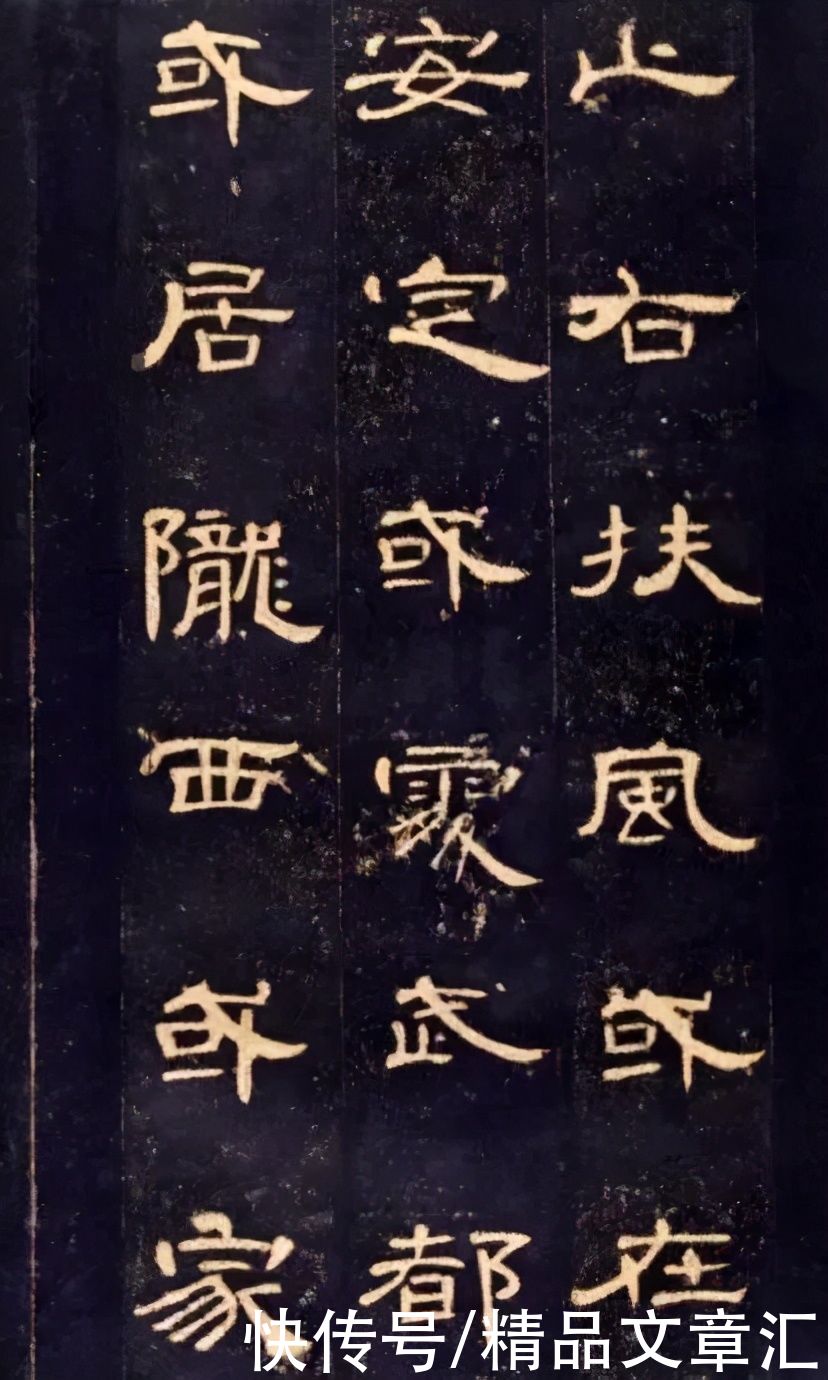 止右扶風或在
安定或處武都
或居隴西或家
快传号/精品文章汇